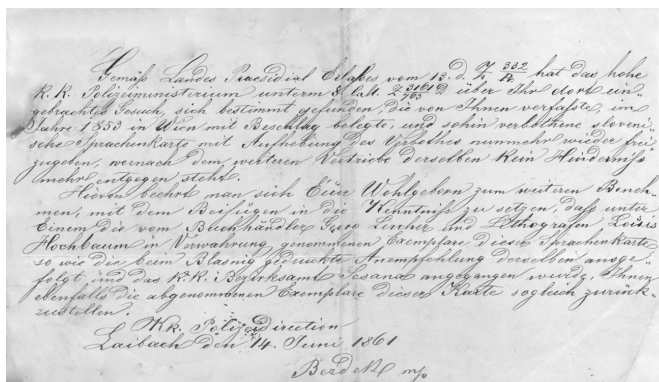 Gemäß Landes Praesidial Erlaßes vom 13. d. Z. 332/Pr. hat das hohe
k. k. Polizeiministerium unterm 8. l. M. Z über Ihr dort ein-
gebrachtes Gesuch, sich bestimmt gefunden die von Ihnen verfaßte, im
Jahre 1853 in Wien mit Beschlag belegte, und sohin verbothene sloveni-
sche Sprachenkarte mit Aufhebung des Verbothes nunmehr wieder frei-
zugeben, wornach dem weiteren Vertriebe derselben kein Hinderniß
mehr entgegen steht.
Hievon beehrt man sich Euer Wohlgeborn zum weiteren Beneh-
men, mit dem Beifügen in die Kenntniß zu setzen, daß unter
Einem die vom Buchhändler Lercher und Lithografen Loisis
Hochbaum in Verwahrung genommenen Exemplare dieser Sprachenkarte
so wie die beim Blasnig gedruckte Anempfehlung derselben ausge-
folgt, und das k. k. Bezirksamt Sesana angegangen wurde, Ihnen
ebenfalls die abgenommenen Exemplare dieser Karte sogleich zurück-
zustellen.
Kk. Polizei Direction
Laibach den 14. Juni 1861
Bezdek mp